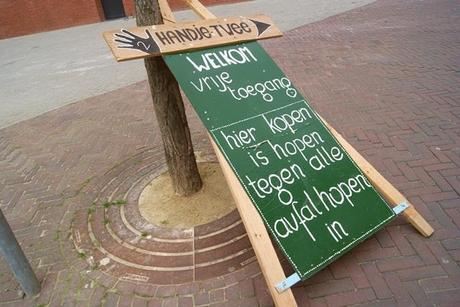 2
HANDJE-TWEE
WELKOM
vrije
toegang
hier kopen
is hopen
tegen alle
afval hopen
in